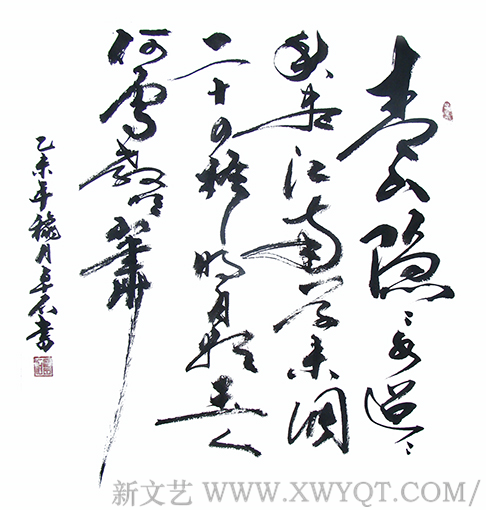 青山隐〻水迢〻
秋尽江南草未凋
二十四桥明月夜玉人
何處教吹簫
乙未年穐月卓石書
新文艺 WWW.XWYQT.COM/